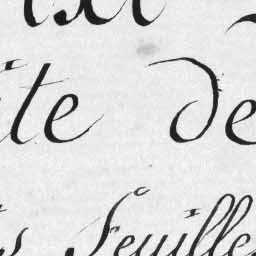 ite de
s feuille